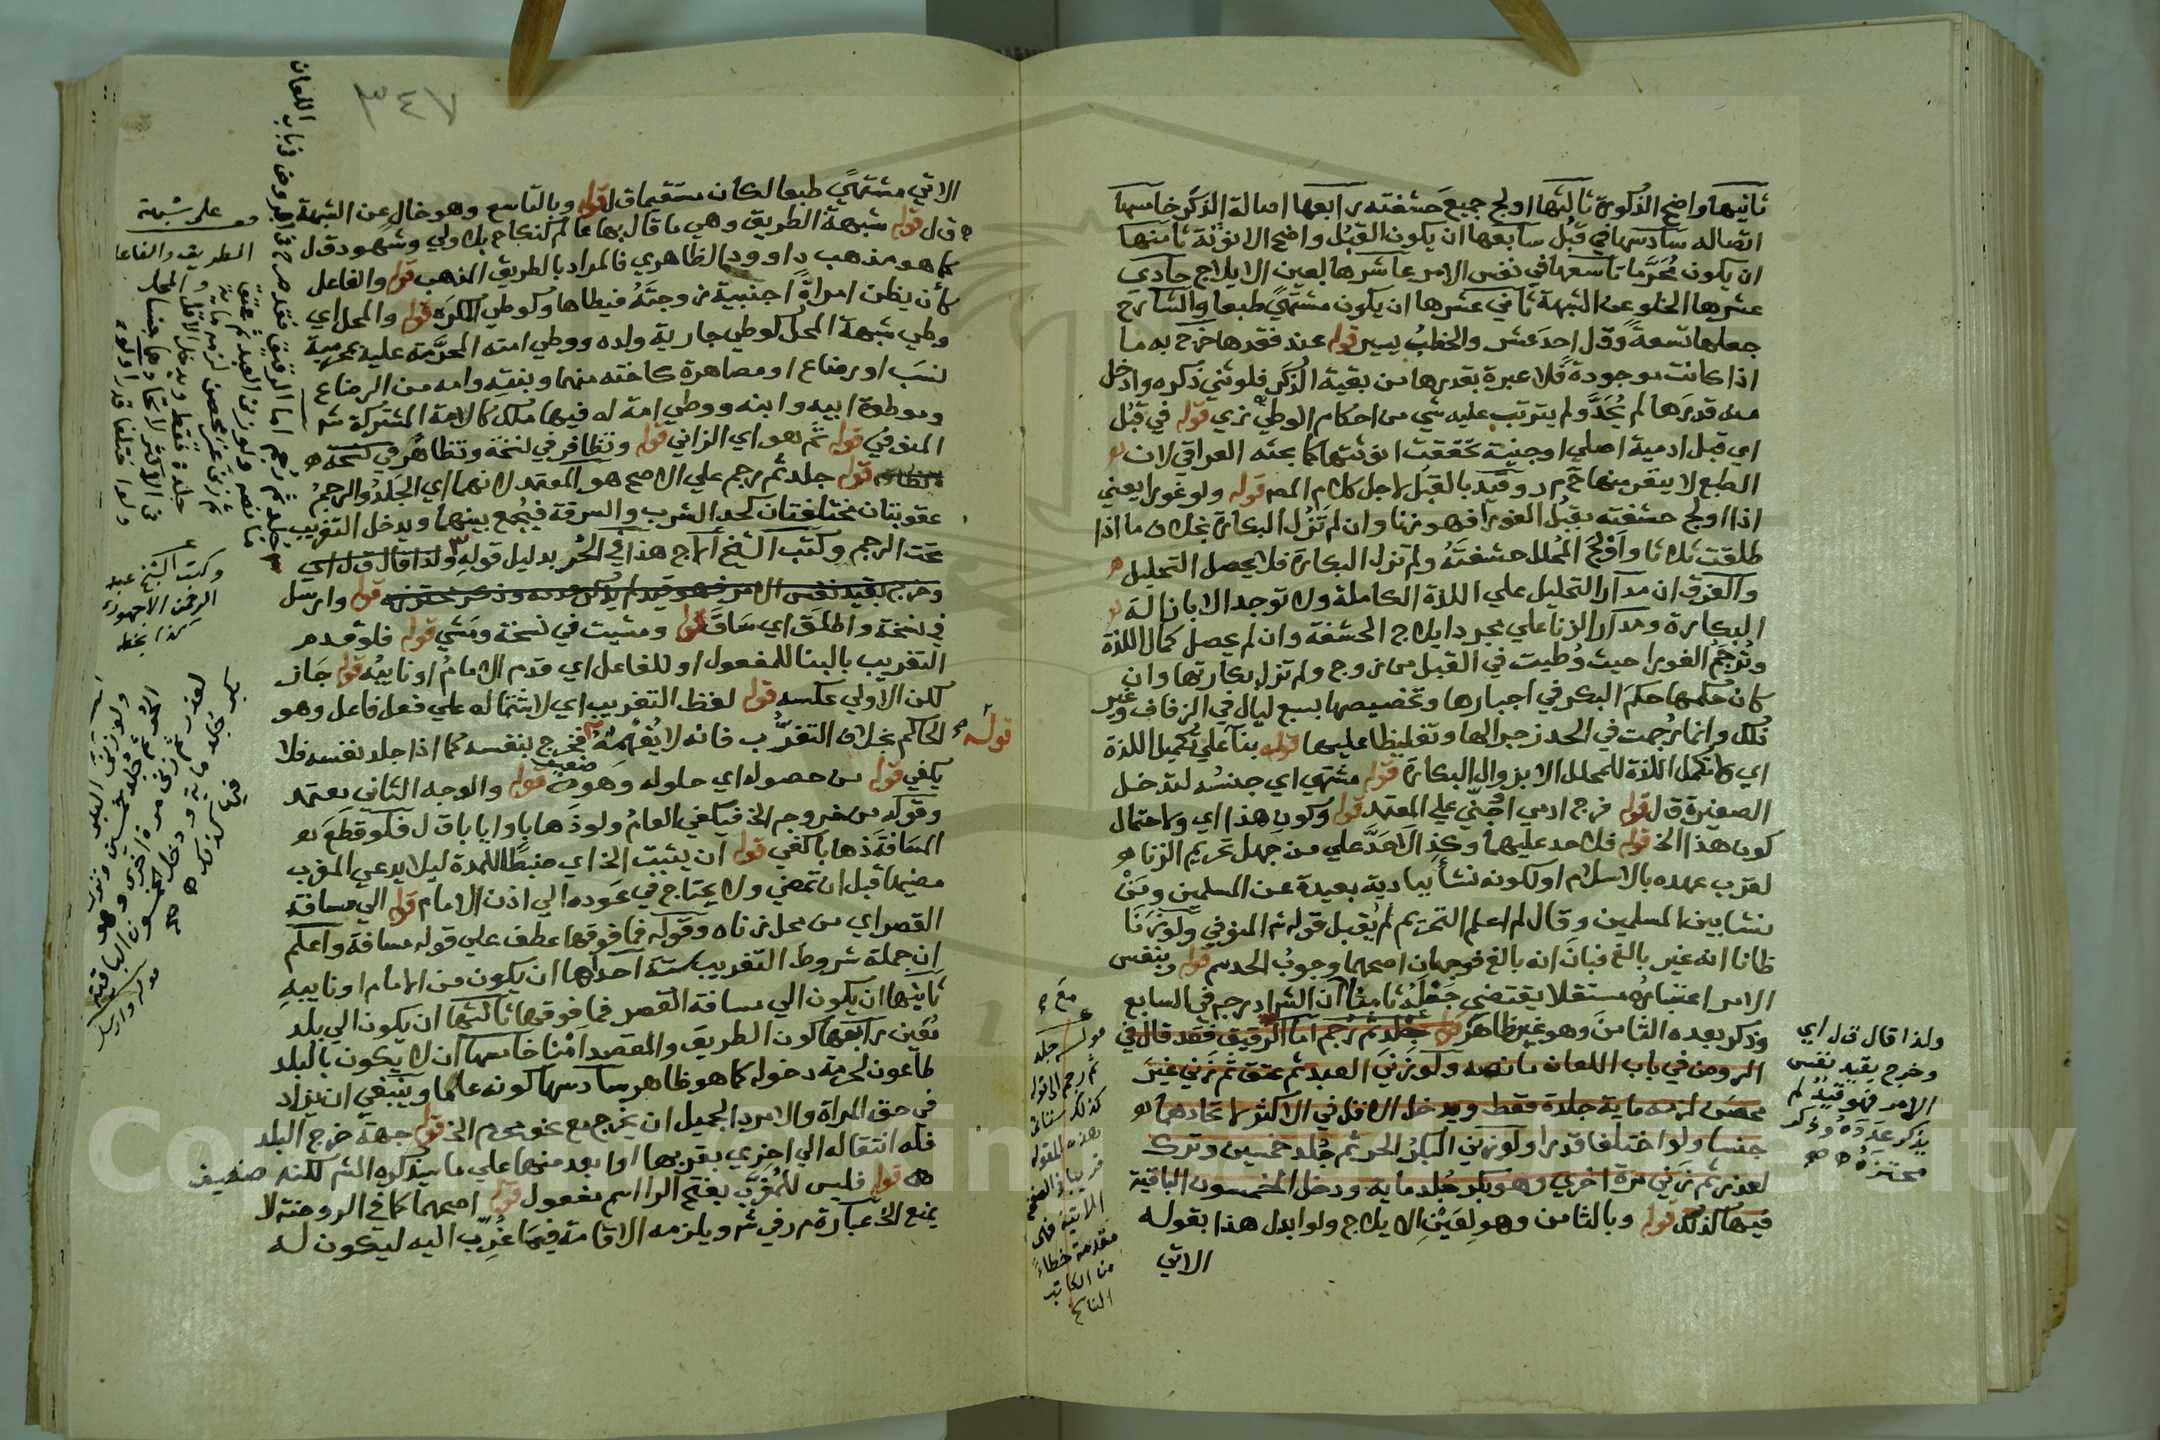 ثانيها واضح الذكورة ثالثها اولج جميع حشفته رابعها اصالة الذكر خامسها
اتصاله سادسها في قبل سابعها ان يكون القبل واضح الانوثة ثامنها
ان يكون محرما تاسعها في نفس الامر عاشرها لعين الايلاج حادي
عشرها الخلو عن الشبهة ثاني عشرها ان يكون مشتهي طبعا والشارح
جعلها تسعة وقل احد عشر والخطب يسير قوله عند فقدها خرج به ما
اذا كانت موجودة فلا عبرة بقدرها من بقية الذكر فلو ثني ذكره وادخل
منه قدرها لم يحد ولم يترتب عليه شي من احكام الوطي زي قوله في قبل
اي قبل ادمية اصلي او جنية تحققت انوثتها كما بحثه العراقي لان
الطبع لا ينفر منها ح م ر وقيد بالقبل لاجل كلام المص قوله ولو غورا يعني
اذا اولج حشفته بقبل الغورا فهو زنا وان لم تزل البكارة بخلاف ما اذا
طلقت ثلاثا واولج المحلل حشفته ولم تزل البكارة فلا يحصل التحليل
والفرق ان مدار التحليل علي اللذة الكاملة ولا توجد الا بازالة
البكارة ومدار الزنا علي مجرد ايلاج الحشفة وان لم يحصل كمال اللذة
وترجم الغورا حيث وطيت في القبل من زوج ولم تزل بكارتها وان
كان حكمها حكم البكر في اجبارها وتخصيصها بسبع ليال في الزفاف وغير
ذلك وانما رجمت في الحد زجرا لها وتغليظا عليها قوله بنآ علي تكميل اللذة
اي لا تكمل اللذة للمحلل الا بزوال البكارة قوله مشتهي اي جنسه لتدخل
الصغيرة ق ل قوله فرج ادمي او جني علي المعتمد قوله وكون هذا اي ولاحتمال
كون هذا الخ قوله فلا حد عليهما وكذا لا حد علي من جهل تحريم الزنا
لقرب عهده بالاسلام او لكونه نشأ ببادية بعيدة عن المسلمين ومن
نشا بين المسلمين وقال لم اعلم التحريم لم يقبل قوله شر المنوفي ولو زنا
ظانا انه غير بالغ فبان انه بالغ فوجهان اصحهما وجوب الحد سم قوله وبنفس
الامر اعتباره مستقلا يقتضي جعله ثامنا لان الش ادرجه في السابع
وذكر بعده الثامن وهو غير ظاهر قوله جلد ثم رجم اما الرقيق فقد قال في
الروض في باب اللعان ما نصه ولو زني العبد ثم عتق ثم زني غير
محصن لزمه ماية جلدة فقط ويدخل الاقل في الاكثر لاتحادهما
جنسا ولو اختلفا قدرا ولو زني البكر الحر ثم جلد خمسين وترك
لعذر ثم زني مرة اخري وهو بكر جلد ماية ودخل الخمسون الباقية
فيها كذلك قوله وبالثامن وهو لعين الايلاج ولو ابدل هذا بقوله
الاتي
ولذا قال ق ل اي
وخرج بقيد نفس
الامر فهو قيد لم
يذكر عدده وذكر
محترزه
٣٤٧
الاتي مشتهي طبعا لكان مستقيما ق ل قوله وبالتاسع وهو خال عن الشبهة
ق ل قوله شبهة الطريق وهي ما قال بها عالم كنكاح بلا ولي وشهود ق ل
كما هو مذهب داوود الظاهري فالمراد بالطريق المذهب قوله والفاعل
كأن يظن امراة اجنبية زوجته فيطاها وكوطي المكره قوله والمحل اي
وطي شبهة المحل كوطي جارية ولده ووطي امته المحرمة عليه بمحرمية
نسب او رضاع او مصاهرة كاخته منهما وبنته وامه من الرضاع
وموطوة ابيه وابنه ووطي امة له فيها ملك كالامة المشتركة شر
المنوفي قوله ثم هو اي الزاني قوله وتظافر في نسخة وتظاهر في نسخة
قوله جلد ثم رجم علي الاصح هو المعتمد لانهما اي الجلد والرجم
عقوبتان مختلفتان كحد الشرب والسرقة فيجمع بينهما ويدخل التغريب
تحت الرجم وكتب الشيخ أ ج هذا في الحر بدليل قوله ولذا قال ق ل اي
وخرج بقيد نفس الامر فهو قيد لم يذكر عدده وذكر محترزه قوله وارسل
في نسخة واطلق اي ساق قوله ومشيت في نسخة ومشي قوله فلو قدم
التغريب بالبنا للمفعول او للفاعل اي قدم الامام او نايبه قوله جاز
لكن الاولي عكسه قوله لفظ التغريب اي لاشتماله علي فعل فاعل وهو
الحاكم بخلاف التغرب فانه لا يفهمه قوله فخرج بنفسه كما اذا جلد نفسه فلا
يكفي قوله من حصوله اي حلوله وهو ضعيف قوله والوجه الثاني معتمد
وقوله من خروجه الخ فيكفي العام ولو ذهابا وايابا ق ل فلو قطع
المسافة ذهابا كفي قوله ان يثبت الخ اي ضبطا للمدة ليلا يدعي المغرب
مضيها قبل ان تمضي ولا يحتاج في عوده الي اذن الامام قوله الي مسافة
القصر اي من محل زناه وقوله فما فوقها عطف علي قوله مسافة واعلم
ان جملة شروط التغريب ستة احدها ان يكون من الامام او نايبه
ثانيها ان يكون الي مسافة القصر فما فوقها ثالثها ان يكون الي بلد
معين رابعها كون الطريق والمقصد امنا خامسها ان لا يكون بالبلد
طاعون لحرمة دخوله كما هو ظاهر سادسها كونه عاما وينبغي ان يزاد
في حق المراة والامرد الجميل ان يخرج مع نحو محرم الخ قوله جهة خرج البلد
فله انتقاله الي اخري بقربها او ابعد منها علي ما سيذكره الش لكنه ضعيف
قوله فليس للمغرب بفتح الرا اسم مفعول قوله اصحهما كما في الروضة لا
يمنع الخ عبارة م ر في شر ويلزمه الاقامة فيما غرب اليه ليكون له
قوله
على شبهة
الطريق والفاعل
والمحل
جلد ثم رجم اما الرقيق فقد صرح في الروض في باب اللعان
ما نصه ولو زني العبد ثم عتق
ثم زنى غير محصن لزمه ماية
جلدة فقط ويدخل الاقل
في الاكثر لاتحادهما جنسا
ولو اختلفا قدرا ولو
وكتب الشيخ عبد
الرحمن الاجهوري
كذا بخطه
ولو زنى البكر
الحر ثم جلد خمسين وترك
لعذر ثم زنى مرة اخرى وهو
بكر جلد ماية ودخل الخمسون الباقية
فيها كذلك
قوله وارسل
قوله جلد
ثم رجم الى قوله
كذلك ستاتى
هذه المقولة
قريبا في الصفحة
الاتية فهى
مقدمة خطاء
من الكاتب
الناسخ
Combined Joint University